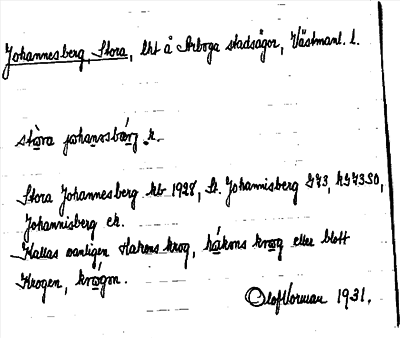 Johannesberg, Stora, lht å Arboga stadsägor, Västmanl. l.
stòra johannsbárj .
Stora Johannesberg kb 1928, St. Johannisberg GJ3,
Johannisberg ek.
Kallas vanligen Hakons krog, håkons krog eller blott
Krogen, krógen.
Olof Norman 1931.